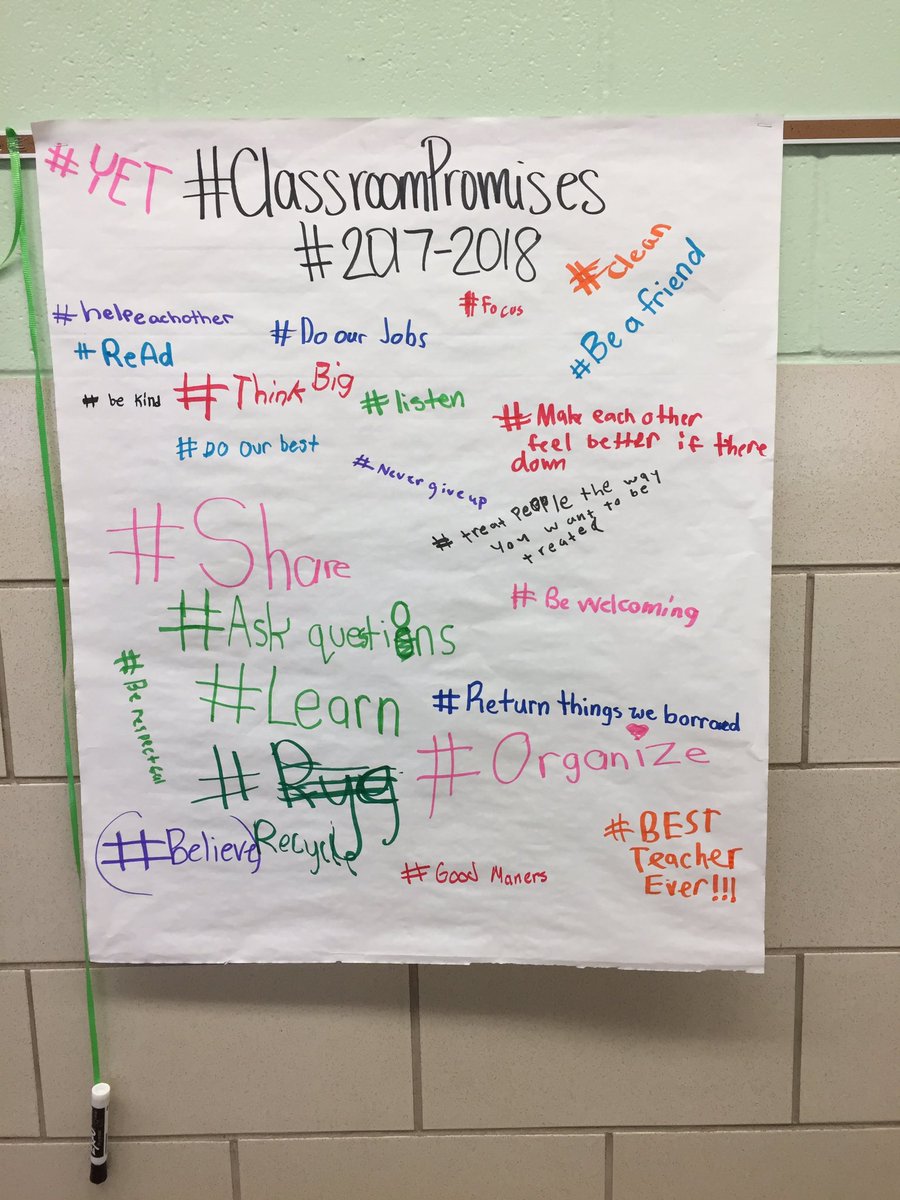 #YET #ClassroomPromises
#2017-2018
#clean
#Be a friend
#helpeachother
#Focus
#Do our Jobs
#ReAd
#Think Big
# be kind
#listen
#Make each other
feel better if there
down
#DO our best
#Never give up
# treat people the way
you want to be
treated
#Share
#Be welcoming
#Ask questions
#Be respectful
#Learn
#Return things we borrowed
#Organize
#
#Believe
Recycle
#BEST
Teacher
Ever!!!
#Good Maners